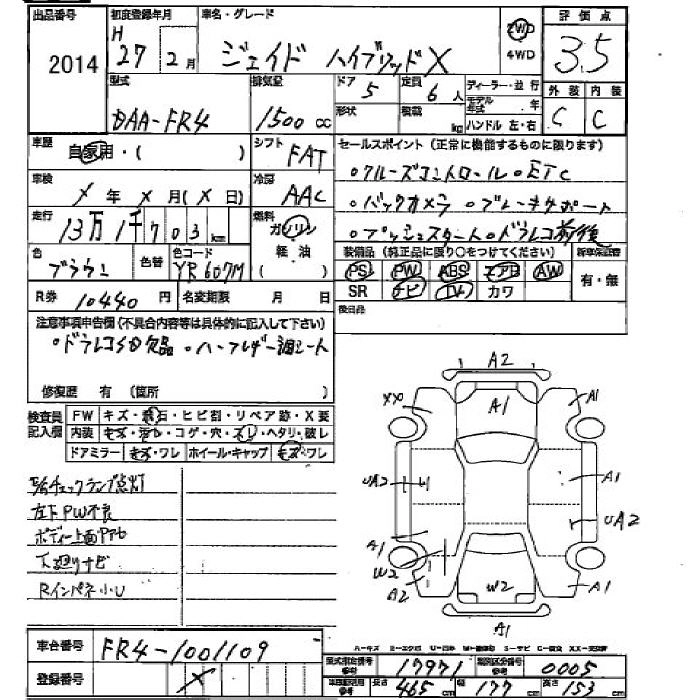 出品番号 初度登録年月 車名・グレード 評価点
2014 H 27 2月 ジェイド ハイブリッドX 2WD 4WD 3.5
型式 排気量 ドア 定員 ディーラー・並行 外装 内装
DAA-FR4 1500cc 5 6人 モデル年式 年 C C
形状 積載 kg ハンドル 左・右
車歴 自家用・( ) シフト FAT セールスポイント(正常に機能するものに限ります)
車検 X年X月(X日) 冷房 AAC 。クルーズコントロール 。ETC
走行 13万1千703km 燃料 ガソリン 軽油 ( ) 。バックカメラ 。ブレーキサポート
。プッシュスタート 。ドラレコ前後
色 ブラウン 色替 色コード YR607M 装備品(純正品に限り○をつけてください) 新車保証書
PS PW ABS エアB AW 有・無
SR ナビ TV カワ
R券 10440円 名変期限 月 日 後日品
注意事項申告欄(不具合内容等は具体的に記入して下さい)
。ドラレコSD欠品 。ハーフレザー調シート
修復歴 有 (箇所 )
検査員記入欄 FW キズ・飛石・ヒビ割・リペア跡・X要
内装 キズ・汚レ・コゲ・穴・スレ・ヘタリ・破レ
ドアミラー キズ・ワレ ホイール・キャップ キズ・ワレ
E/Gチェックランプ点灯
左下PW不良
下廻りサビ
Rインパネ小U
A2
XX A1 A1
UA2 A1
UA2
A1
W2
A2 W2 A1
A1
車台番号 FR4-1001109
登録番号 X
型式指定番号 参考 17971 類別区分番号 参考 0005
長さ 465cm 幅 177cm 高さ 153cm